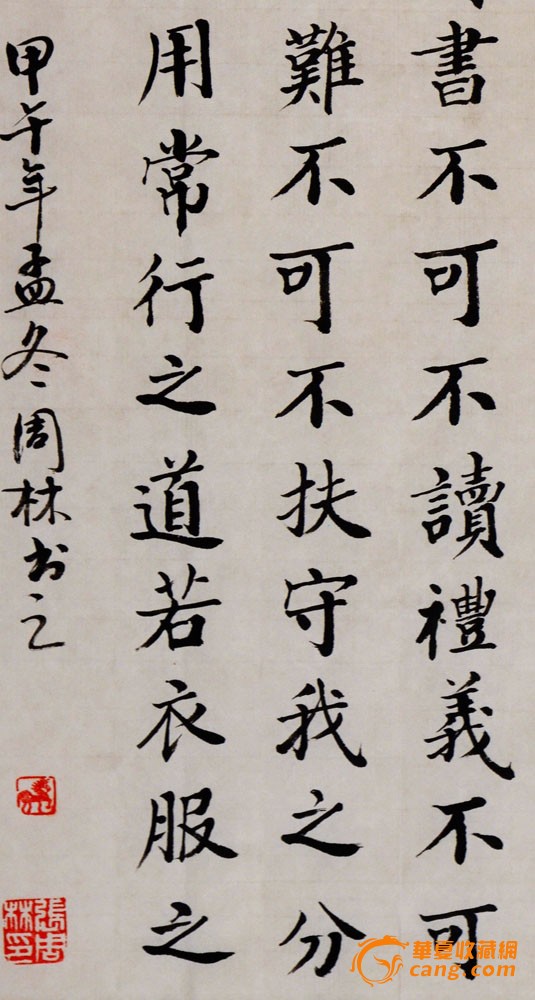 書不可不讀禮義不可
難不可不扶守我之分
用常行之道若衣服之
甲午年孟冬周林书之
張周林印
華夏收藏網
cang.com